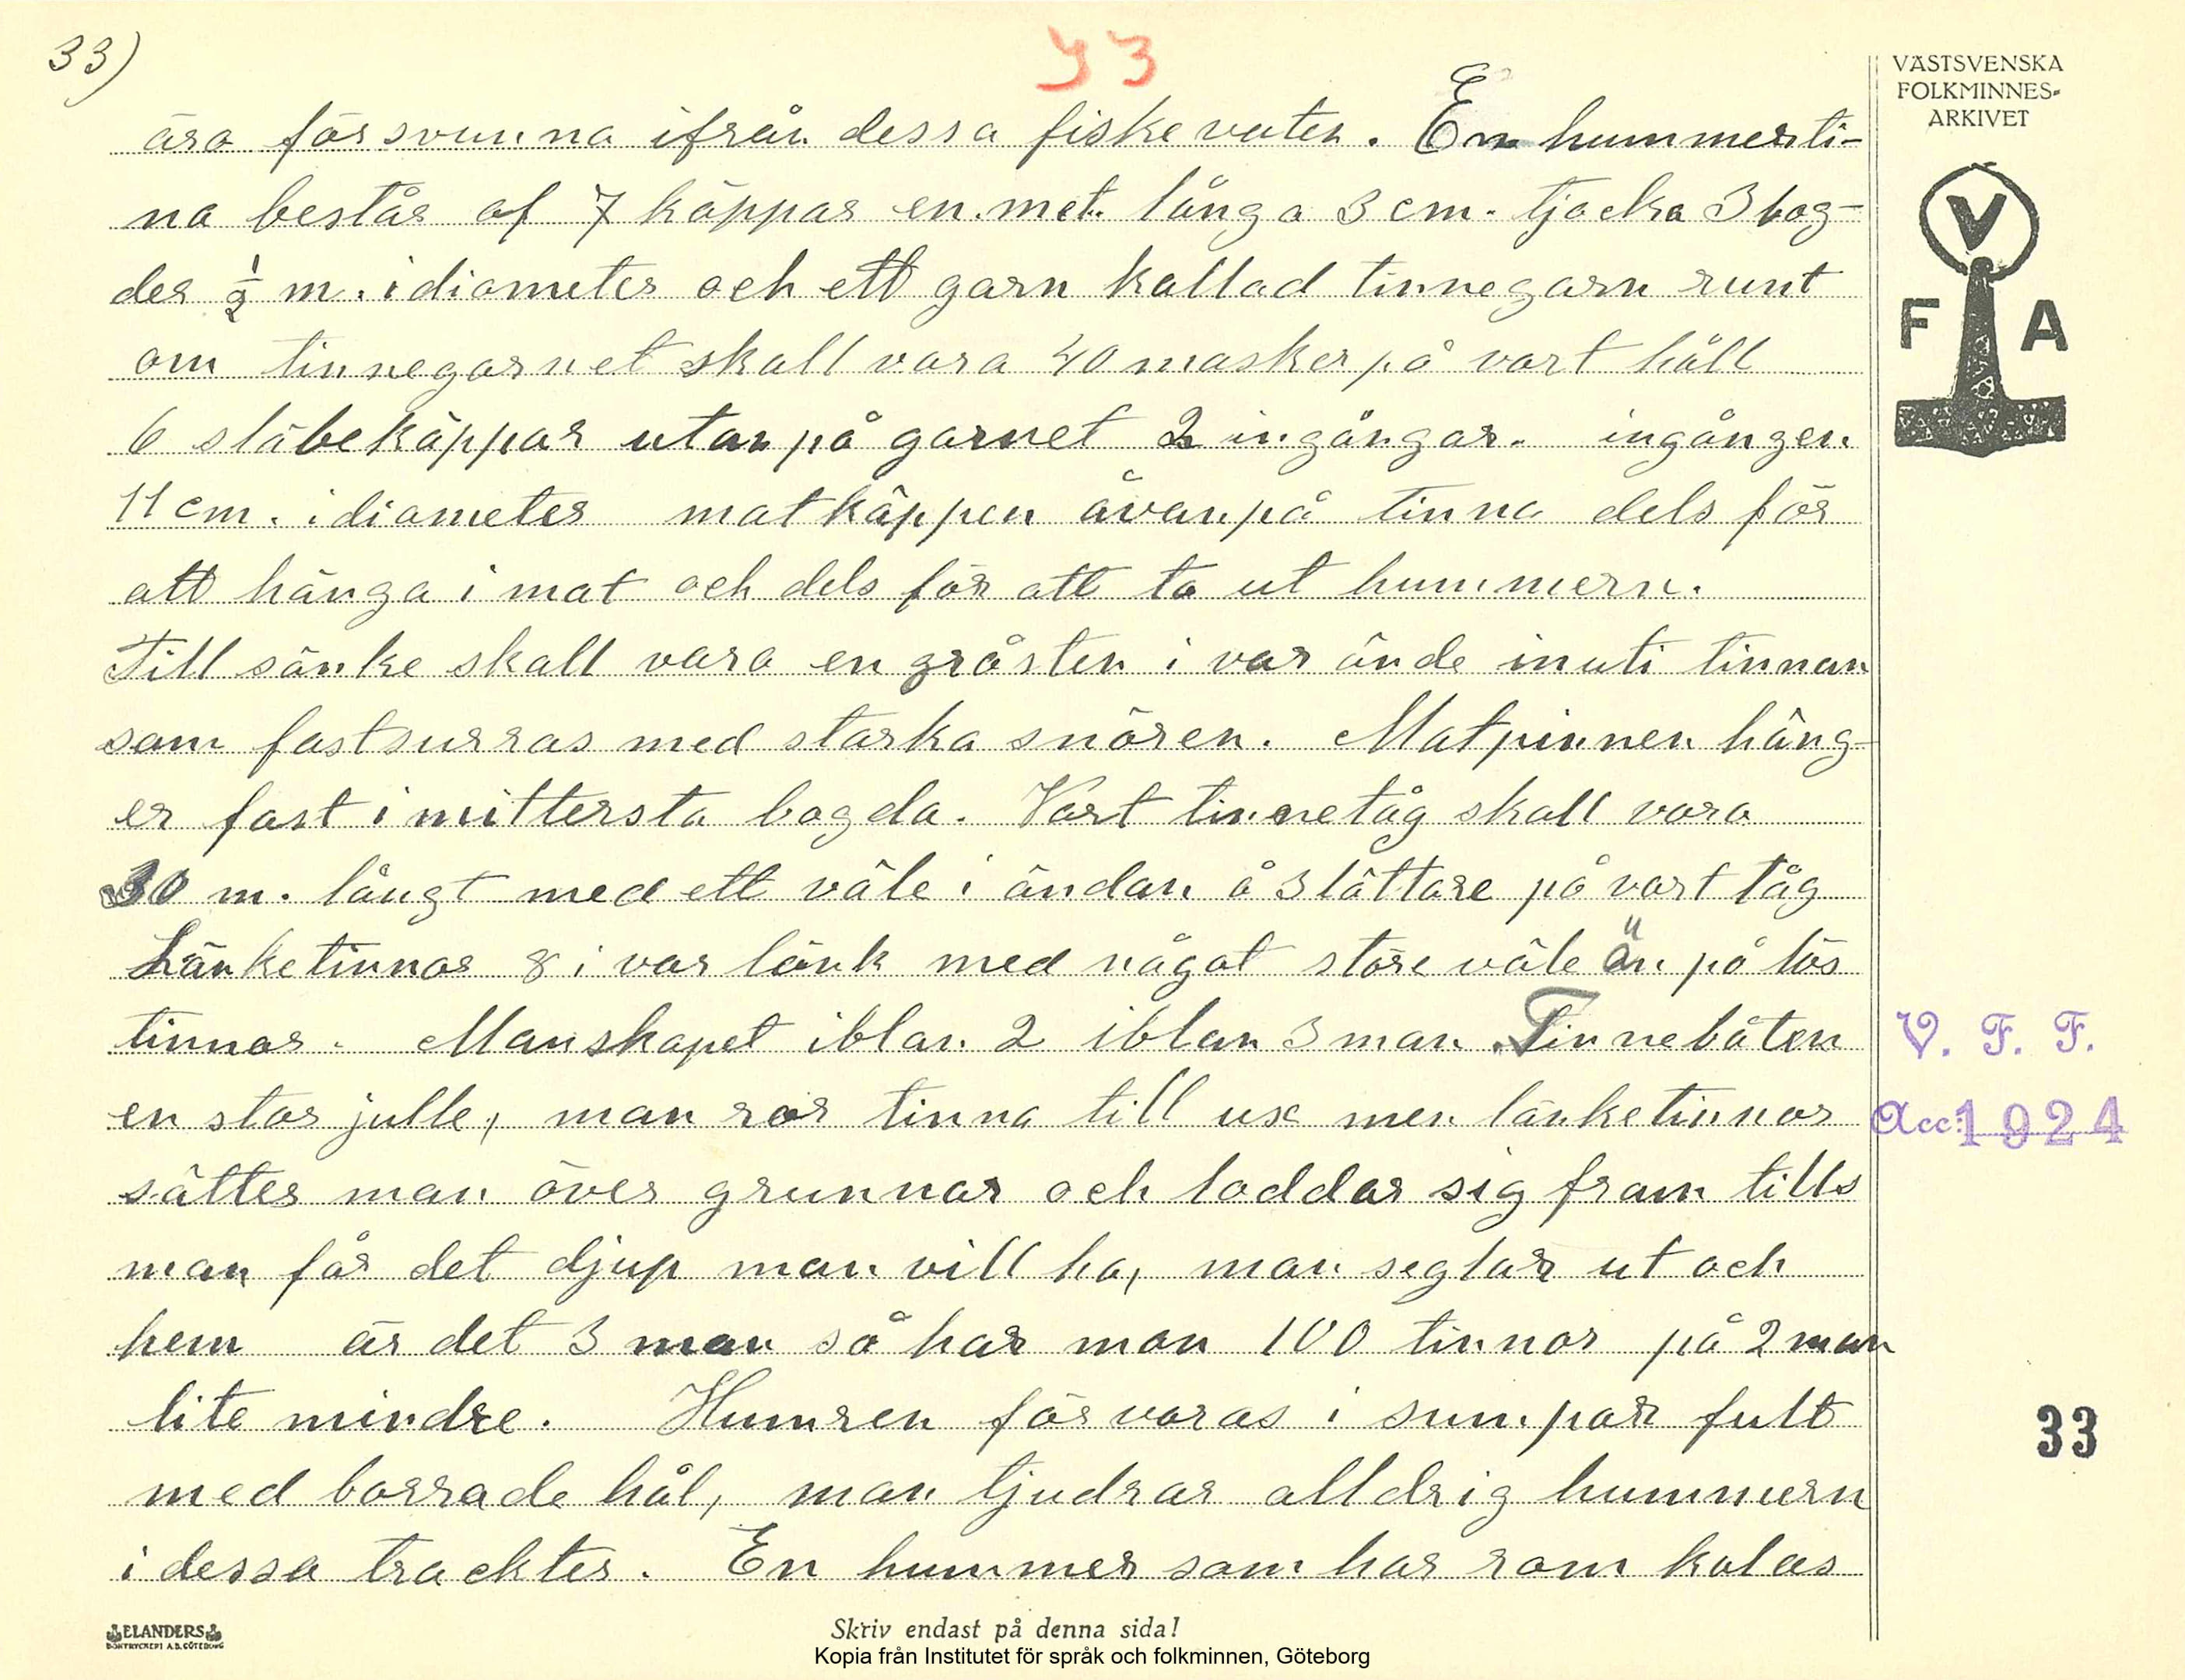 33)
33
VÄSTSVENSKA
FOLKMINNES-
ARKIVET
V
F A
äro försvunna ifrån dessa fiskevaten. En hummerti-
na består af 7 käppar en.met. långa 3 cm. tjocka 3 bog-
der ½ m. i diameter och ett garn kallad tinnegarn runt
om tinnegarnet skall vara 40 masker på vart håll
6 släbekäppar utanpå garnet 2 ingångar. ingången
11 cm. i diameter matkäppen åvanpå tinna dels för
att hänga i mat och dels för att ta ut hummern.
Till sänke skall vara en gråsten i var ände inuti tinnan
som fastsurras med starka snören. Matpinnen häng-
er fast i mittersta bogda. Vart tinnetåg skall vara
30 m. långt med ett väle i ändan å 3 låttare på vart tåg
Länketinnor 8 i var länk med något störe väle än på lös
tinnor. Manskapet iblan 2 iblan 3 man. Tinnebåten
en stor julle, man ror tinna till use men länketinnor
sätter man över grunnar och loddar sig fram tills
man får det djup man vill ha, man seglar ut och
hem är det 3 man så har man 100 tinnor på 2 man
lite mindre. Humren förvaras i sumpar fult
med borrade hål, man tjudrar alldrig hummern
i dessa trackter. En hummer som har rom kalas
V. F. F.
Acc: 1924
33
ELANDERS
BOKTRYCKERI A.B. GÖTEBORG
Skriv endast på denna sida!
Kopia från Institutet för språk och folkminnen, Göteborg